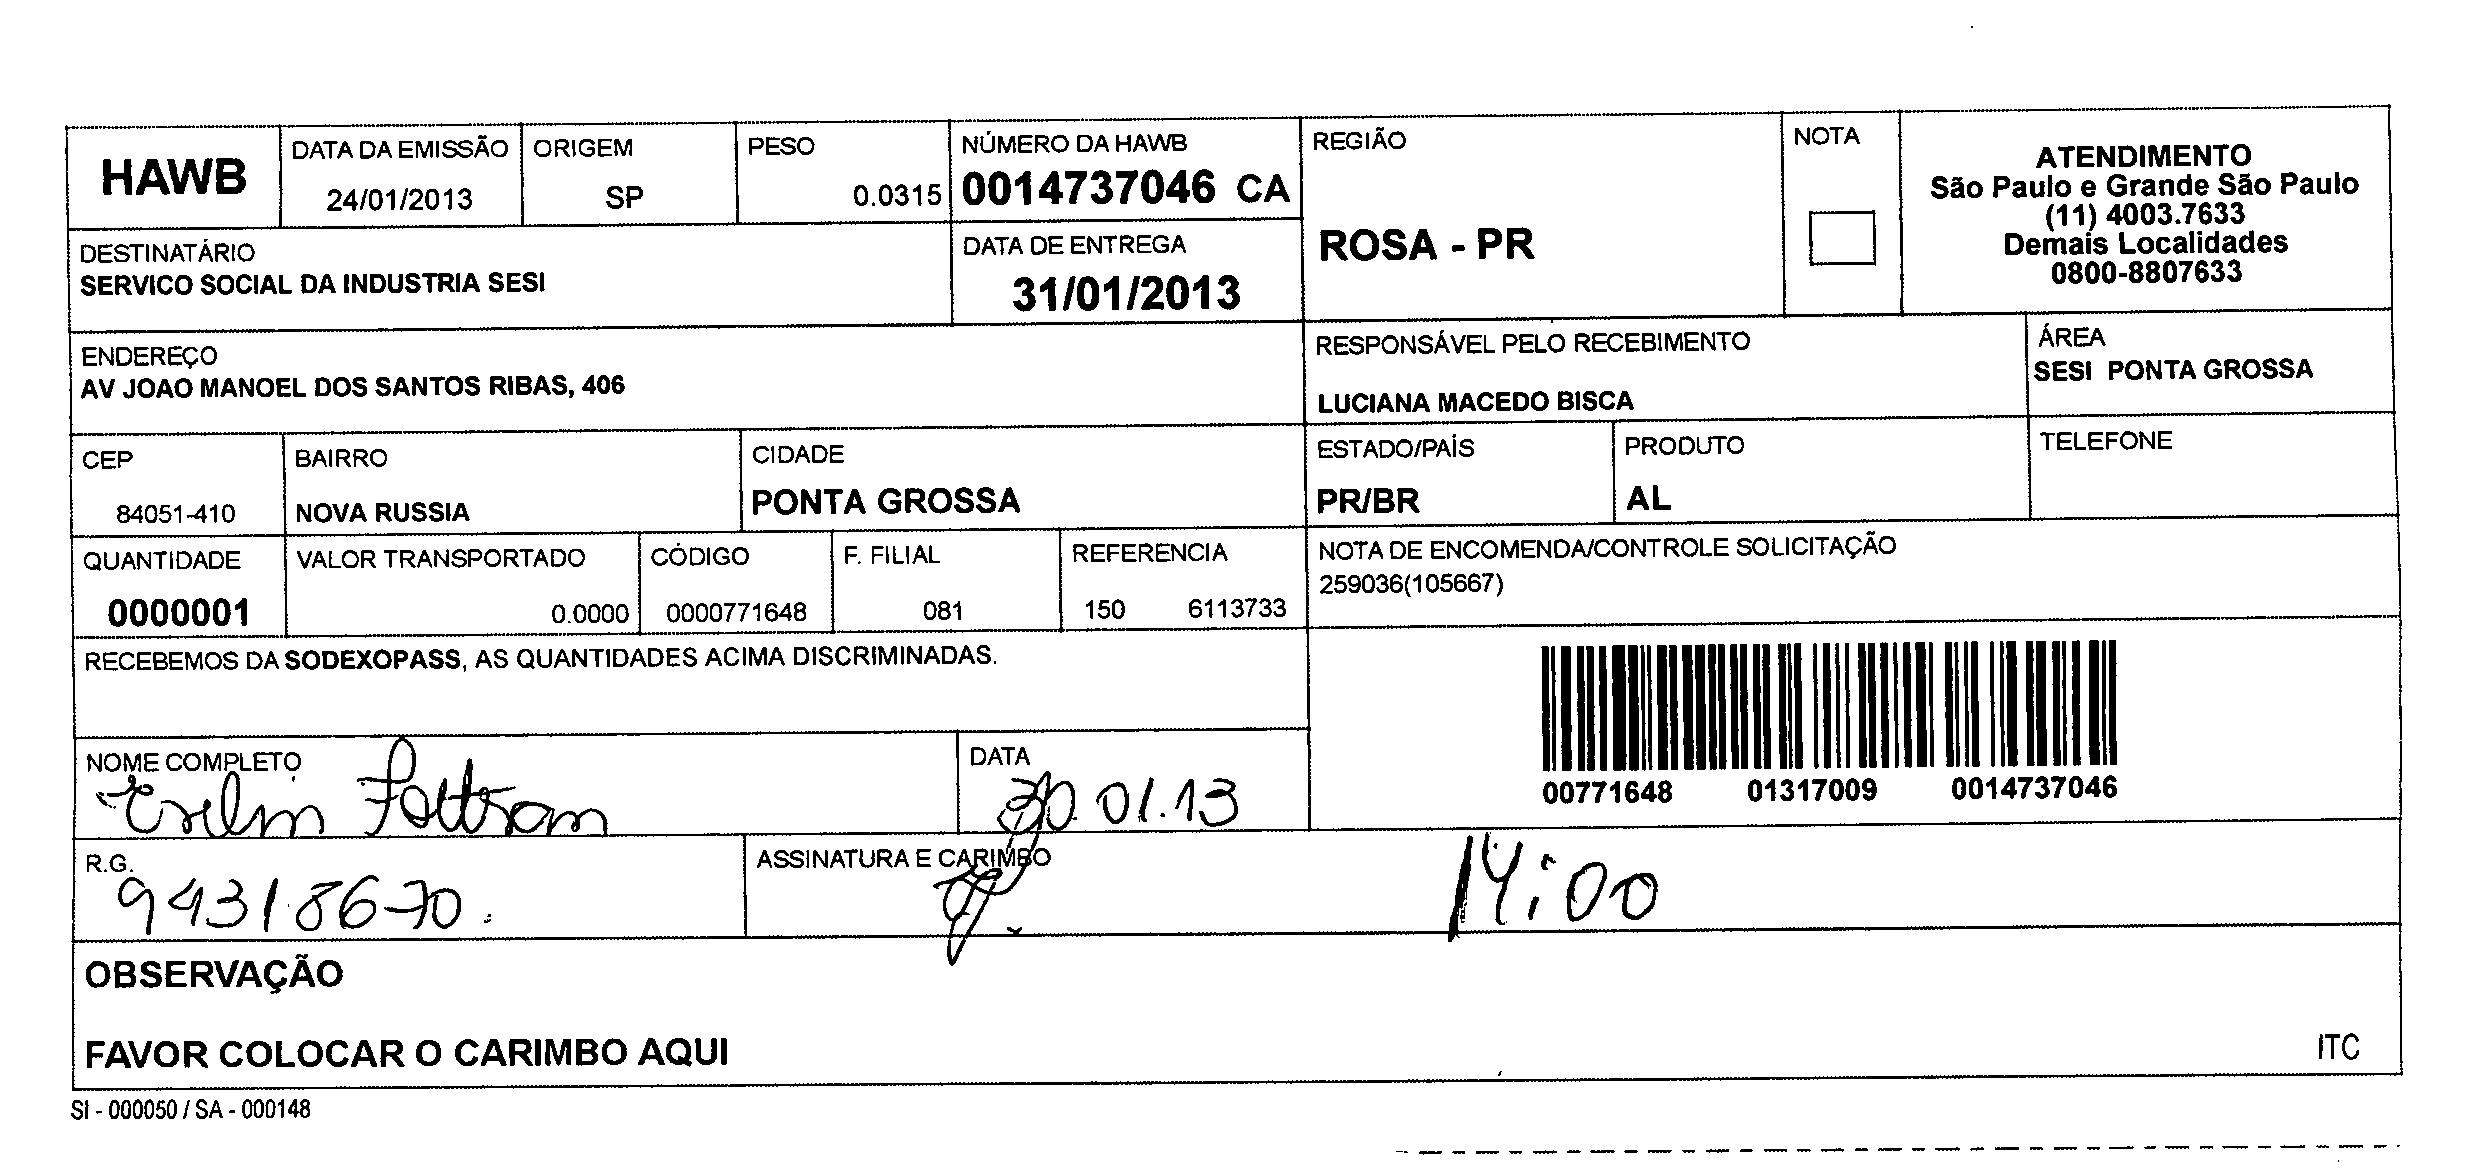 HAWB
DATA DA EMISSÃO
24/01/2013
ORIGEM
SP
PESO
0.0315
NÚMERO DA HAWB
0014737046 CA
REGIÃO
ROSA - PR
NOTA
ATENDIMENTO
São Paulo e Grande São Paulo
(11) 4003.7633
Demais Localidades
0800-8807633
DESTINATÁRIO
SERVICO SOCIAL DA INDUSTRIA SESI
DATA DE ENTREGA
31/01/2013
ENDEREÇO
AV JOAO MANOEL DOS SANTOS RIBAS, 406
RESPONSÁVEL PELO RECEBIMENTO
LUCIANA MACEDO BISCA
ÁREA
SESI PONTA GROSSA
CEP
84051-410
BAIRRO
NOVA RUSSIA
CIDADE
PONTA GROSSA
ESTADO/PAÍS
PR/BR
PRODUTO
AL
TELEFONE
QUANTIDADE
0000001
VALOR TRANSPORTADO
0.0000
CÓDIGO
0000771648
F. FILIAL
081
REFERENCIA
150 6113733
NOTA DE ENCOMENDA/CONTROLE SOLICITAÇÃO
259036(105667)
RECEBEMOS DA SODEXOPASS, AS QUANTIDADES ACIMA DISCRIMINADAS.
00771648 01317009 0014737046
NOME COMPLETO
DATA
30.01.13
R.G.
94318670
ASSINATURA E CARIMBO
14:00
OBSERVAÇÃO
FAVOR COLOCAR O CARIMBO AQUI
ITC
SI - 000050 / SA - 000148